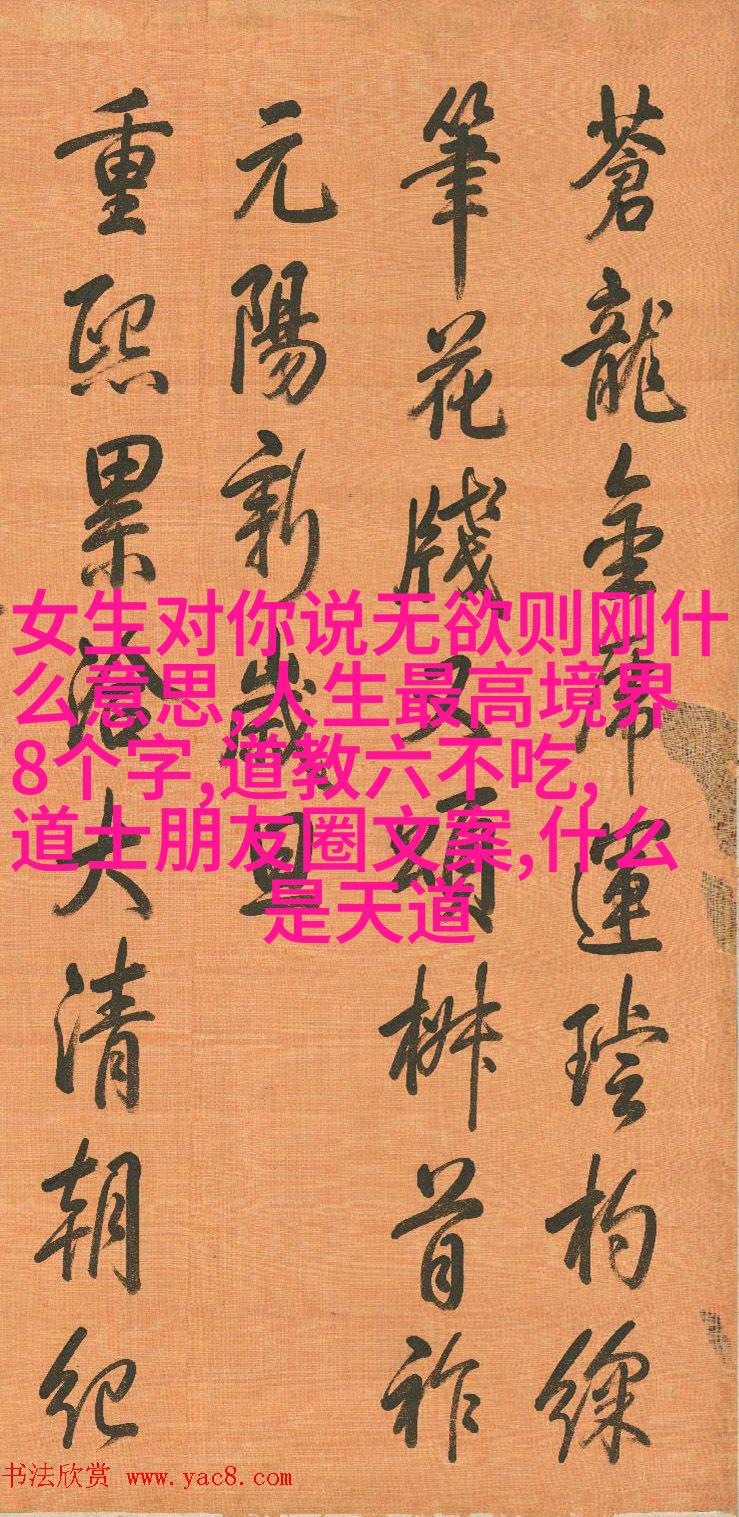 蒼龍金虎運璿杓綵
筆花牋又頌椒首祚
元陽新歲旦
重熙累洽大清朝紀
女生对你说无欲则刚什
么意思,人生最高境界
8个字,道教六不吃,
道士朋友圈文案,什么
是天道
书法欣赏 www.yac8.com